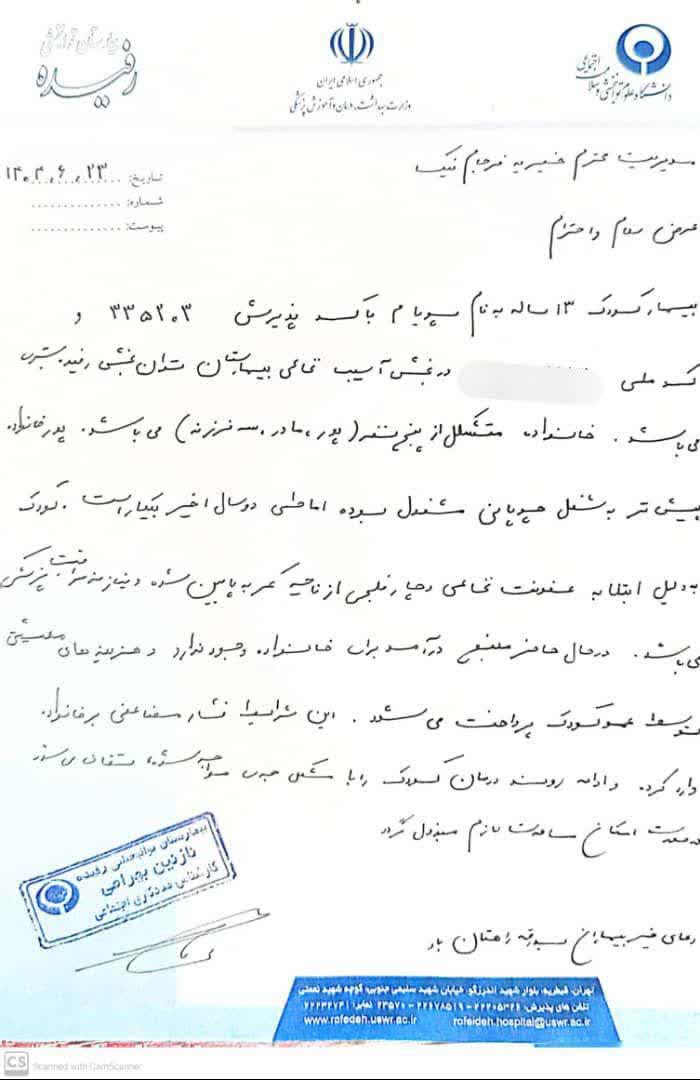 بیمارستان توانبخشی
رفیده
جمهوری اسلامی ایران
وزارت بهداشت، درمان و آموزش پزشکی
دانشگاه علوم توانبخشی و سلامت اجتماعی
تاریخ: ۱۴۰۴٫۶٫۲۳
شماره: ..............
پیوست: ..............
مدیریت محترم خیریه فرجام نیک
عرض سلام و احترام
بیمار کودک ۱۳ ساله به نام پویا م با کد پذیرش ۳۳۵۲۰۳ و
کد ملی در بخش آسیب نخاعی بیمارستان توان بخشی رفیده بستری
می باشد. خانواده متشکل از پنج نفر (پدر، مادر، سه فرزند) می باشد. پدر خانواده
پیش تر به شغل چوپانی مشغول بوده اما طی دو سال اخیر بیکار است. کودک
به دلیل ابتلا به عفونت نخاعی دچار فلجی از ناحیه کمر به پایین شده و نیازمند مراقبت پزشکی
می باشد. در حال حاضر منبع درآمد برای خانواده وجود ندارد و هزینه های معیشتی
توسط عمو کودک پرداخت می شود. این شرایط فشار مضاعفی بر خانواده
وارد کرده و ادامه روند درمان کودک را با مشکل جدی مواجه شده متقاضی می شود
در صورت امکان مساعدت لازم مبذول گردد
دعای خیر بیماران بدرقه راهتان باد
بیمارستان توانبخشی رفیده
نازنین بهرامی
کارشناس مددکاری اجتماعی
تهران، قیطریه، بلوار شهید اندرزگو، خیابان شهید سلیمی جنوبی، کوچه شهید نعمتی
تلفن های پذیرش: ۲۲۲۰۵۳۲۶ - ۲۲۶۷۸۵۱۹ - ۲۳۵۷۰ نمابر: ۲۲۲۳۲۷۴۱
www.rofeideh.uswr.ac.ir rofeideh.hospital@uswr.ac.ir
CS Scanned with CamScanner